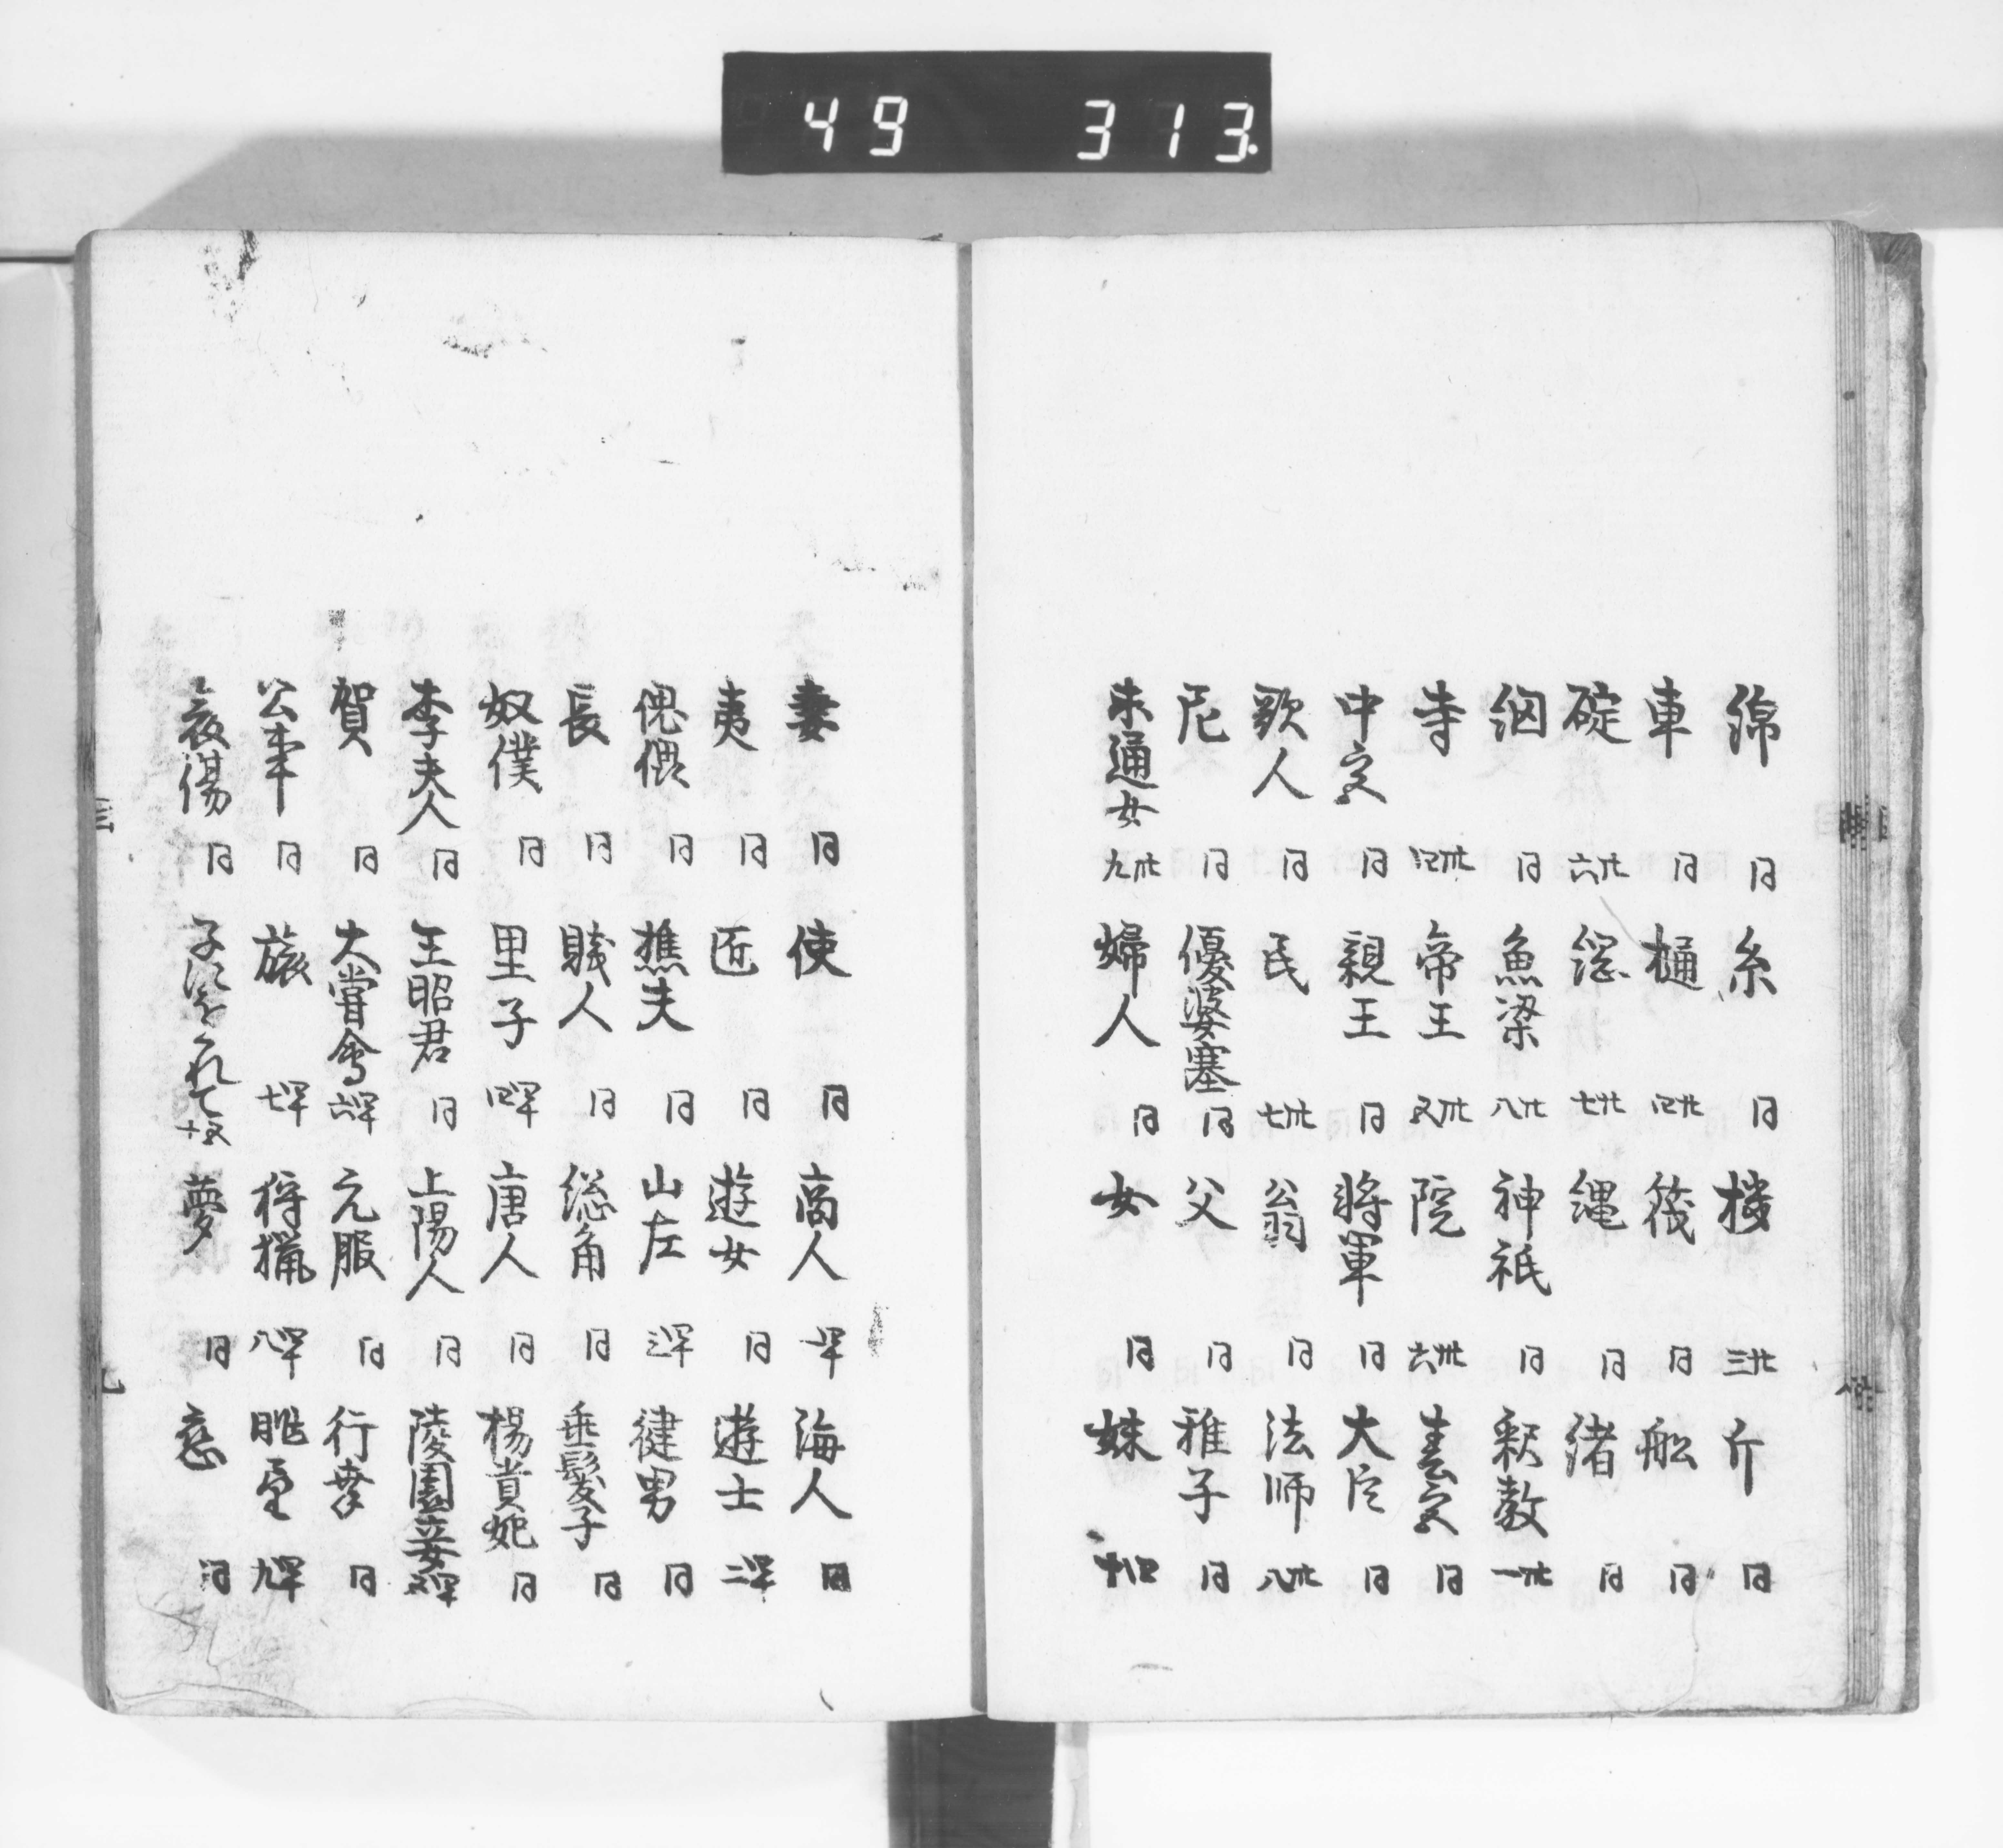 49 313.
綿 同 糸 同 樓 廿三 斤 同
車 同 樋 廿四 筏 同 舩 同
碇 廿六 廿七 縄 同 緒 同
網 同 魚梁 廿八 神祇 同 釈教 卅一
寺 卅四 帝王 卅五 院 卅六 春宮 同
中宮 同 親王 同 将軍 同 大臣 同
歌人 同 民 卅七 翁 同 法师 卅八
尼 同 優婆塞 同 父 同 稚子 同
未通女 卅九 婦人 同 女 同 妹
妻 同 使 同 商人 海人 同
夷 同 匠 同 遊女 同 遊士 四十二
傀儡 同 樵夫 同 山左 四十三 健男 同
長 同 賤人 同 総角 同 垂髪子 同
奴僕 同 里子 四十四 唐人 同 楊貴妃 同
李夫人 同 王昭君 同 上陽人 同 陵園妾 四十五
賀 同 大嘗會 四十六 元服 同 行幸 同
公事 同 旅 四十七 狩猟 四十八 眺望 四十九
哀傷 同 夢 同 恋 同